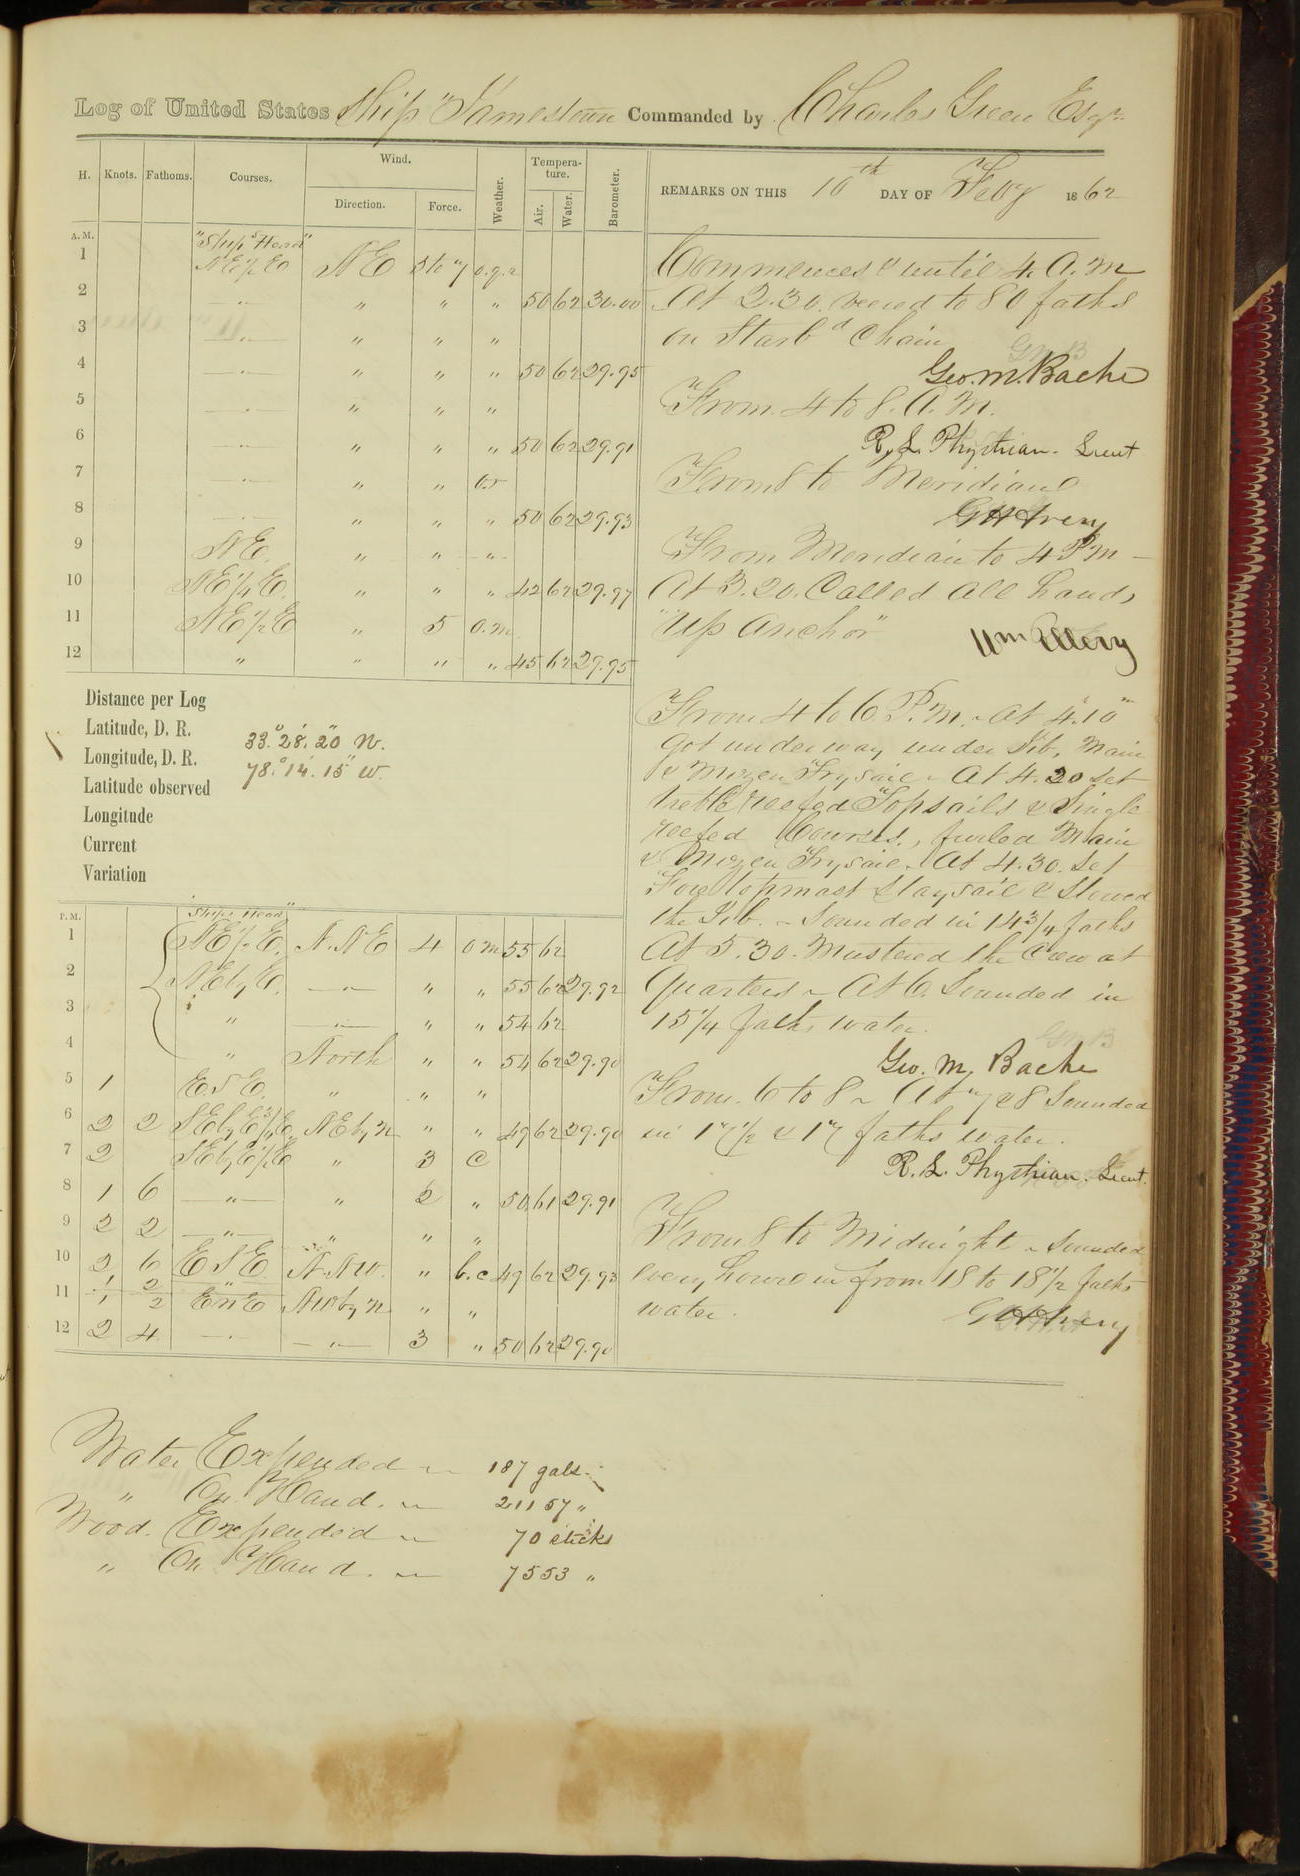 Log of United States Ship "Jamestown Commanded by Charles Green Esqr.
H. Knots. Fathoms. Courses. Wind. Direction. Force. Weather. Tempera-ture. Air. Water. Barometer.
REMARKS ON THIS 10th DAY OF Feby 1862
A.M. "Ship's Head"
1 NE½E NE 5 to 7 o.q.r
2 " " " " 50 62 30.00
3 " " " "
4 " " " " 50 62 29.95
5 " " " "
6 " " " " 50 62 29.91
7 " " " o.r
8 " " " " 50 62 29.93
9 NE " " "
10 NE½E. " " " 42 62 29.97
11 NE½E " 5 o.m.
12 " " " " 45 62 29.95
Distance per Log
Latitude, D. R. 33.° 28.' 20" N.
Longitude, D. R. 78.° 14.' 15" W.
Latitude observed
Longitude
Current
Variation
P.M. "Ships Head"
1 NE½E. N.NE 4 o m 55 62
2 NEbyE. " " " 55 62 29.92
3 " " " " 54 62
4 " North " " 54 62 29.90
5 1 ESE. " " "
6 2 2 SEbyE¾E. NEbyN " " 49 62 29.90
7 2 SEbyE½E " 3 c
8 1 6 " " 2 " 50 61 29.91
9 2 2 " " " "
10 2 6 ESE N.NW. " b.c 49 62 29.93
11 1 2 "
1 2 ENE NWbyN " "
12 2 4 " " 3 " 50 62 29.90
Commences & until 4. A.M
At 2.30. veered to 80 faths
on Starbd Chain
Geo. M. Bache
From 4 to 8. A.M.
R. L. Phythian. Lieut
From 8 to Meridian
From Meridian to 4 P.M
At 3.20. Called all hands
"Up Anchor"
Wm Ellery
From 4 to 6 P.M. At 4.10
got underway under Jib, Main
& Mizen Trysail. At 4.20 set
treble reefed Topsails & Single
reefed Courses., furled Main
& Mizen Trysail. At 4.30. set
Fore topmast Staysail & Stowed
the Jib. Sounded in 14¾ faths
At 5.30. Mustered the Crew at
Quarters. At 6. Sounded in
15¼ faths water.
Geo. M. Bache
From. 6 to 8. At 7 & 8 Sounded
in 17½ & 17 faths water.
R. L. Phythian. Lieut.
From 8 to Midnight. Sounded
every hour in from 18 to 18½ faths
water.
Water Expended 187 gals.
" On Hand. 21157 "
Wood. Expended 70 sticks
" On Hand. 7553 "